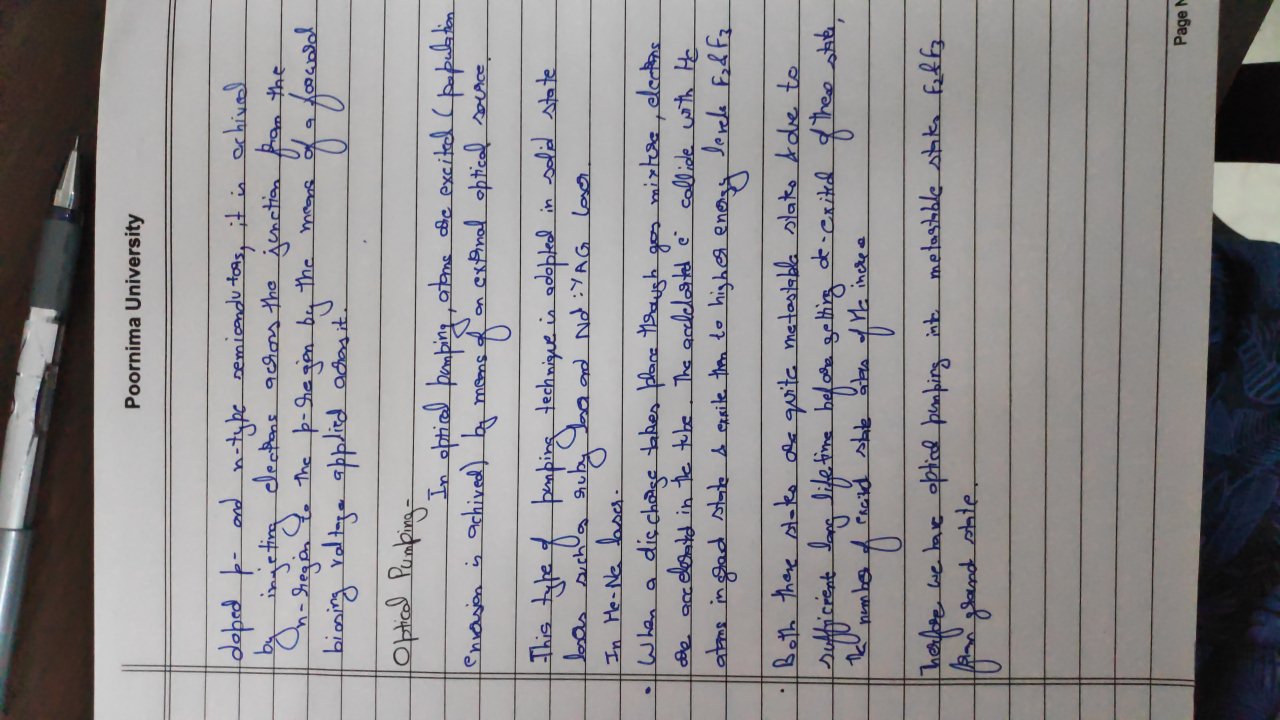 Poornima University
doped p- and n-type semicondutors, it is achived
by injeting electrons across the junction from the
n-region to the p-region by the means of a forward
biasing voltage applied across it.
Optical Pumping-
In optical pumping, atoms are excited (population
envasion is achived) by means of an external optical source.
This type of pumping technique is adopted in solid state
lasers such as ruby laser and Nd:YAG laser.
In He-Ne laser.
• When a discharge takes place through gas mixture, electrons
are accelerated in the tube. The accelerated e⁻ collide with He
atoms in ground state & exite then to higher energy levels F₂ & F₃
• Both these states are quite metastable states & due to
sufficient long lifetime before getting de-exited of these state,
the number of excited state atoms of He increa
Therfore we have optical pumping into metastable states F₂ & F₃
from ground state.
Page N